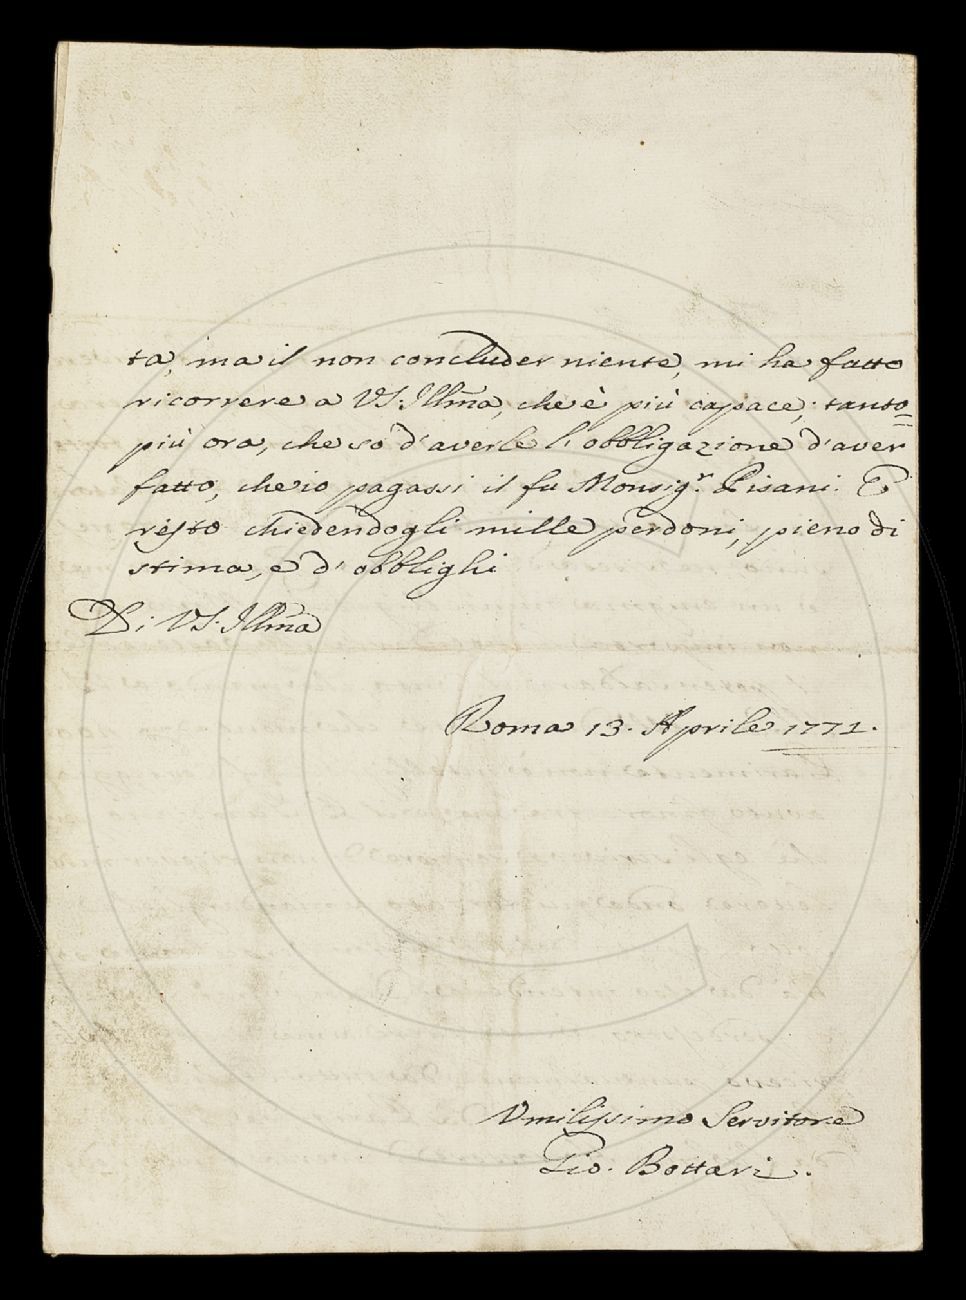 ta, ma il non concluder niente, mi ha fatto
ricorrere a VS. Illma, che è più capace; tanto=
più ora, che so d'averle l'obbligazione d'aver
fatto, che io pagassi il fu Monsigr. Pisani. E
resto chiedendogli mille perdoni, pieno di
stima, e d'obblighi
Di VS. Illma
Roma 13. Aprile 1771.
Umilissimo Servitore
Gio. Bottari.